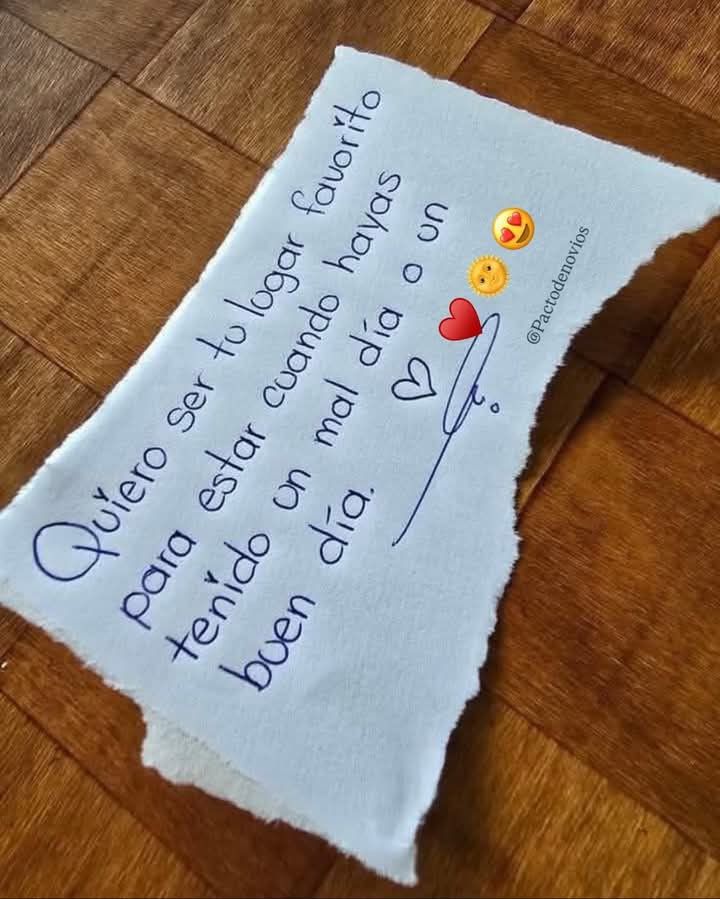 Quiero ser tu lugar favorito
para estar cuando hayas
tenido un mal día o un
buen día. ♡
❤️🌞😍
@Pactodenovios